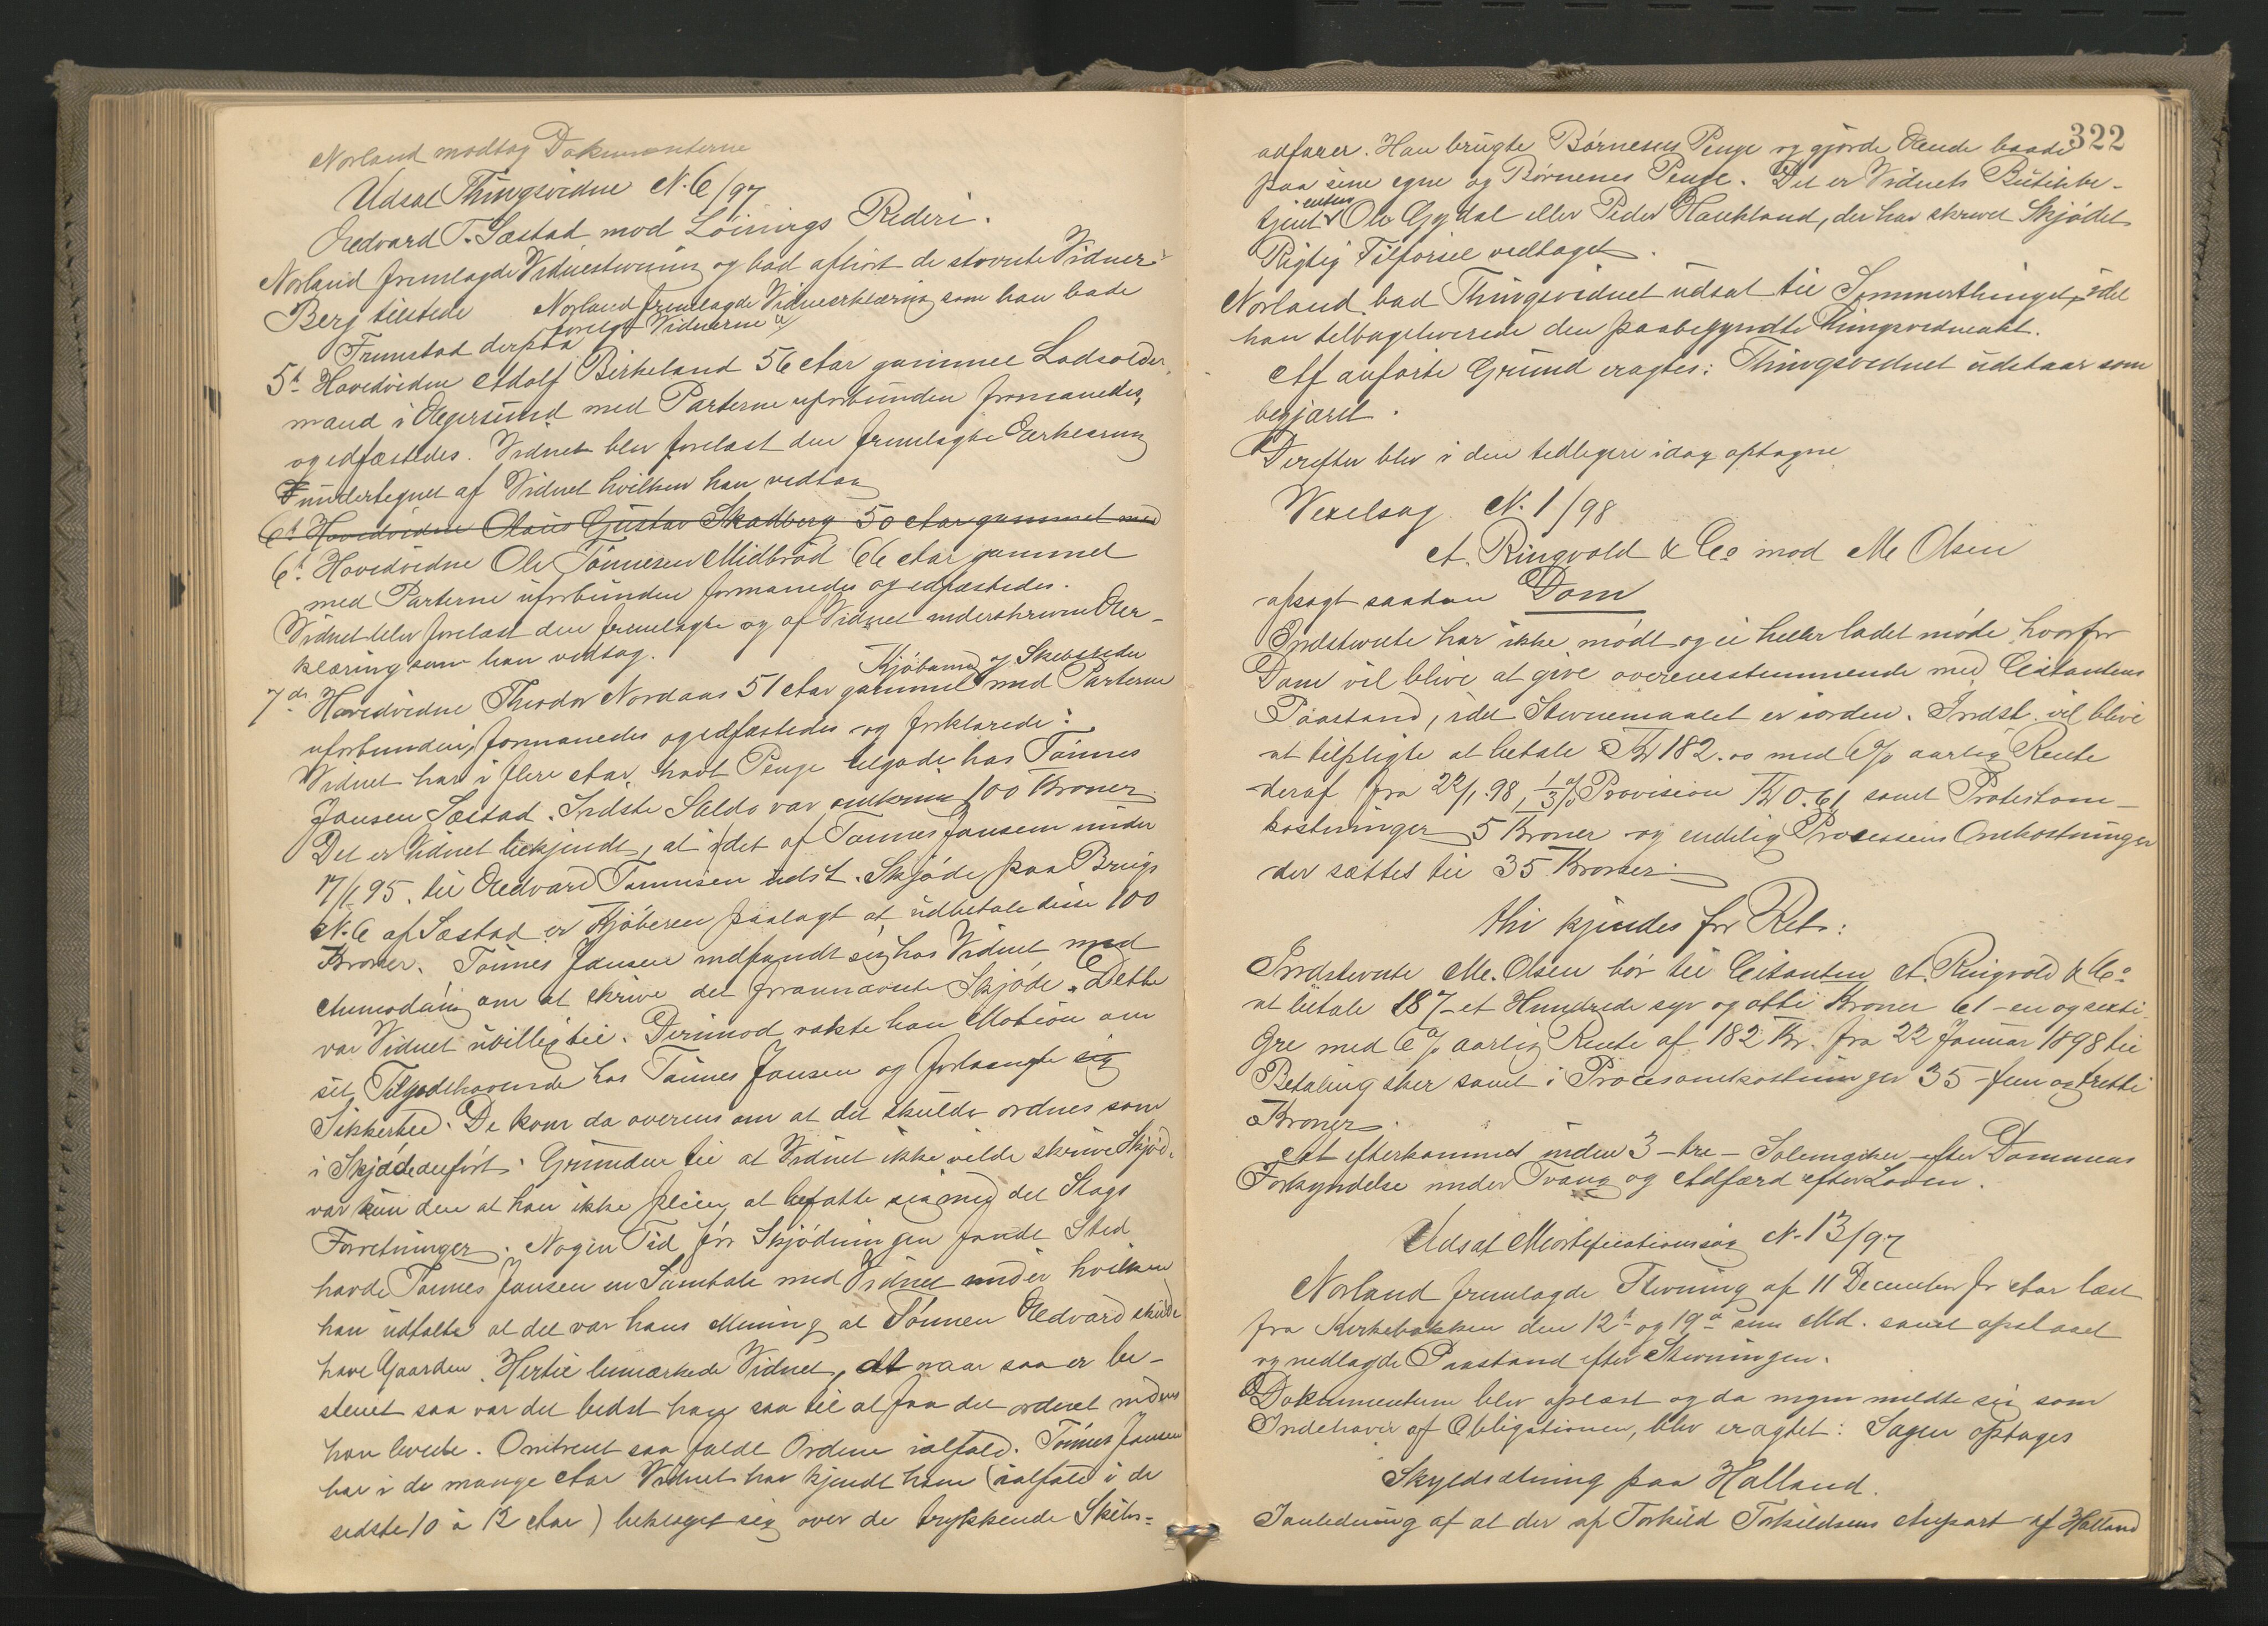 Norland modtog Dokumenterne
Udsat Thingsvidne N. 6/97
Edvard T. Sæstad mod Löinings Rederi.
Norland fremlagde Vidnestevning og bad afhört de stevnte Vidner.
Berg tilstede Norland fremlagde Vidneerklæring som han bad
Frunstad derpaa forelagt Vidnerne
5te Hovedvidne Adolf Birkeland 56 Aar gammel Lodsolder-
mand i Egersund med Parterne uforbunden formanedes
og edfæstedes. Vidnet blev forelæst den fremlagte Erklæring
undertegnet af Vidnet hvilken han vedtog
6te Hovedvidne Olaus Gustav Skadberg 50 Aar gammel med
6te Hovedvidne Ole Tönnesen Midbröd 66 Aar gammel
med Parterne uforbunden formanedes og edfæstedes.
Vidnet blev forelæst den fremlagte og af Vidnet underskrevne Er-
klæring som han vedtog.
Kjöbmand og Skibsreder
7de Hovedvidne Theodor Nordaas 51 Aar gammel med Parterne
uforbunden, formanedes og edfæstedes og forklarede:
Vidnet har i flere Aar havt Penge tilgode hos Tönnes
Jansen Sæstad. Sidste Saldo var omkring 100 Kroner
Det er Vidnet bekjendt, at i det af Tönnes Jansen under
17/1 95. til Edvard Tönnesen udst. Skjöde paa Brugs
N. 6 af Sæstad er Kjöberen paalagt at udbetale disse 100
Kroner. Tönnes Jansen indfandt sig hos Vidnet med
Anmodning om at skrive det forannævnte Skjöde. Dette
var Vidnet uvillig til. Derimod vakte han Motion om
sit Tilgodehavende hos Tönnes Jansen og forlangte sig
Sikkerhed. De kom da overens om at det skulde ordnes som
i Skjödet anfört. Grunden til at Vidnet ikke vilde skrive Skjöd.
var kun den at han ikke pleier at befatte sig med det Slags
Forretninger. Nogen Tid för Skjödningen fandt Sted
havde Tönnes Jansen en Samtale med Vidnet under hvilken
han udtalte at det var hans Mening at Sönnen Edvard skulde
have Gaarden. Hertil bemærkede Vidnet, at naar saa er be-
stemt saa var det bedst han saa til at faa det ordnet medens
han levede. Omtrent saa faldt Ordene ialfald. Tönnes Jansen
har i de mange Aar Vidnet har kjendt ham (ialfald i de
sidste 10 à 12 Aar) beklaget sig over de trykkende Skifts-
322
adfærer. Han brugte Börnenes Penge og gjorde Ende baade
paa sine egne og Börnenes Penge. Det er Vidnets Butikbe-
tjent enten Ole Gydal eller Peder Haukland, der har skrevet Skjödet
Rigtig Tilförsel vedtaget.
Norland bad Thingsvidnet udsat til Sommerthinget, idet
han tilbageleverede den paabegyndte Thingsvidneakt.
Af anförte Grund eragtes: Thingsvidnet udstaar som
begjæret.
Derefter blev i den tidligere idag optagne
Vexelsag N. 1/98
A. Ringvold & Co mod M. Olsen
afsagt saadan Dom
Indstevnte har ikke mödt og ei heller ladet möde hvorfor
Dom vil blive at give overensstemmende med Citantens
Paastand, idet Stevnemaalet er iorden. Indst. vil blive
at tilpligte at betale Kr 182.00 med 6% aarlig Rente
deraf fra 22/1 98, 1/3% Provision Kr 0.61 samt Protestom-
kostninger 5 Kroner og endelig Processens Omkostninger
der sættes til 35 Kroner
thi kjendes for Ret:
Indstevnte M. Olsen bör til Citanten A. Ringvold & Co
at betale 187 - et Hundrede syv og otti Kroner 61 - en og sexti
Öre med 6% aarlig Rente af 182 Kr. fra 22 Januar 1898 til
Betaling sker samt i Procesomkostninger 35 - fem og tretti
Kroner.
At efterkommes inden 3 - tre - Solemærker efter Dommens
Forkyndelse under Tvang og Adfærd efter Loven.
Udsat Mortifikationssag N. 13/97
Norland fremlagde Stevning af 11 December f. Aar læst
fra Kirkebakken den 12te og 19de s.m. Md. samt opslaaet
og nedlagde Paastand efter Stevningen.
Dokumenterne blev oplæst og da ingen meldte sig som
Indehaver af Obligationen, blev eragtet: Sagen optages
Skyldsætning paa Halland.
Ianledning af at der af Torkild Torkildsens Anpart af Halland